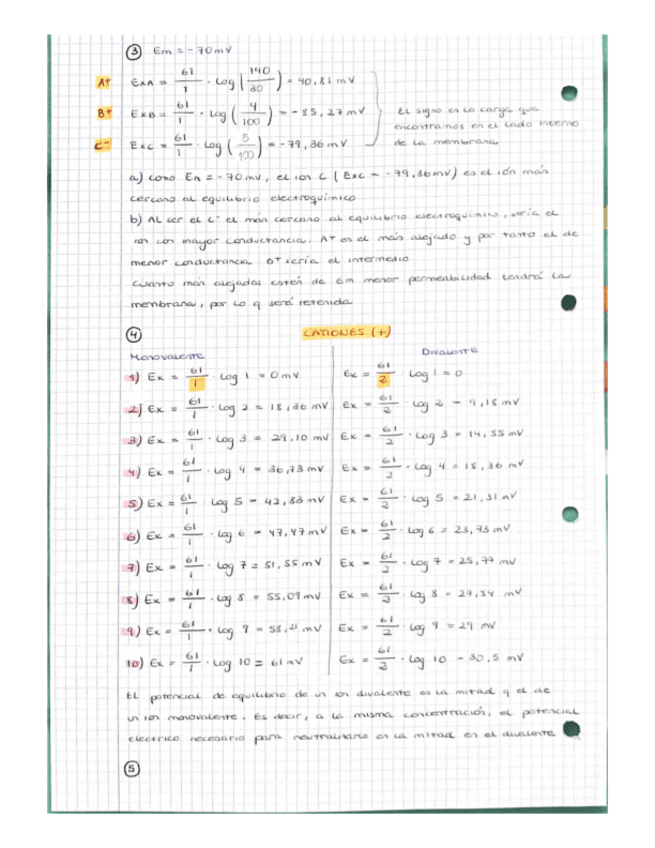 ③ Em = -70mV
A+ ExA = 61/1 · Log (140/30) = 40,81 mV
B+ ExB = 61/1 · Log (4/100) = -85,27 mV
C- Exc = 61/1 · Log (5/100) = -79,36 mV
El signo es la carga que
encontramos en el lado interno
de la membrana
a) como En = -70mv, el ion C (Exc = -79,36mv) es el ión más
cercano al equilibrio electroquímico
b) Al ser el C- el más cercano al equilibrio electroquímico, sería el
ion con mayor conductancia. A+ es el más alejado y por tanto el de
menor conductancia. B+ sería el intermedio
cuanto más alejadas estén de Em menor permeabilidad tendrá la
membrana, por lo q será retenida
④ CATIONES (+)
Monovalente
1) Ex = 61/1 · Log 1 = 0 mV
2) Ex = 61/1 · Log 2 = 18,36 mV
3) Ex = 61/1 · Log 3 = 29,10 mV
4) Ex = 61/1 · Log 4 = 36,73 mV
5) Ex = 61/1 · Log 5 = 42,63 mV
6) Ex = 61/1 · Log 6 = 47,47 mV
7) Ex = 61/1 · Log 7 = 51,55 mV
8) Ex = 61/1 · Log 8 = 55,09 mV
9) Ex = 61/1 · Log 9 = 58,21 mV
10) Ex = 61/1 · Log 10 = 61 mV
Divalente
Ex = 61/2 · Log 1 = 0
Ex = 61/2 · Log 2 = 9,18 mV
Ex = 61/2 · Log 3 = 14,55 mV
Ex = 61/2 · Log 4 = 18,36 mV
Ex = 61/2 · Log 5 = 21,31 mV
Ex = 61/2 · Log 6 = 23,73 mV
Ex = 61/2 · Log 7 = 25,77 mV
Ex = 61/2 · Log 8 = 27,54 mV
Ex = 61/2 · Log 9 = 29 mV
Ex = 61/2 · Log 10 = 30,5 mV
El potencial de equilibrio de un ion divalente es la mitad q el de
un ion monovalente. Es decir, a la misma concentración, el potencial
eléctrico necesario para neutralizarlo es la mitad en el divalente
⑤